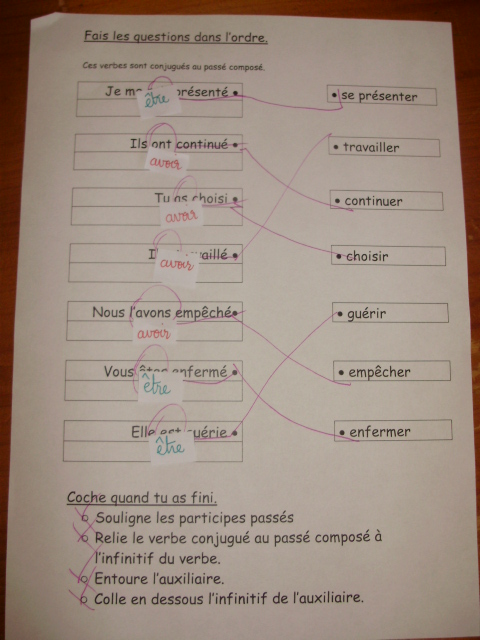 Fais les questions dans l'ordre.
Ces verbes sont conjugués au passé composé.
Je m présenté • • se présenter
être
Ils ont continué • • travailler
avoir
Tu as choisi • • continuer
avoir
vaillé • • choisir
avoir
Nous l'avons empêché • • guérir
avoir
Vous êtes enfermé • • empêcher
être
Elle est guérie • • enfermer
être
Coche quand tu as fini.
o Souligne les participes passés
o Relie le verbe conjugué au passé composé à
l'infinitif du verbe.
o Entoure l'auxiliaire.
o Colle en dessous l'infinitif de l'auxiliaire.